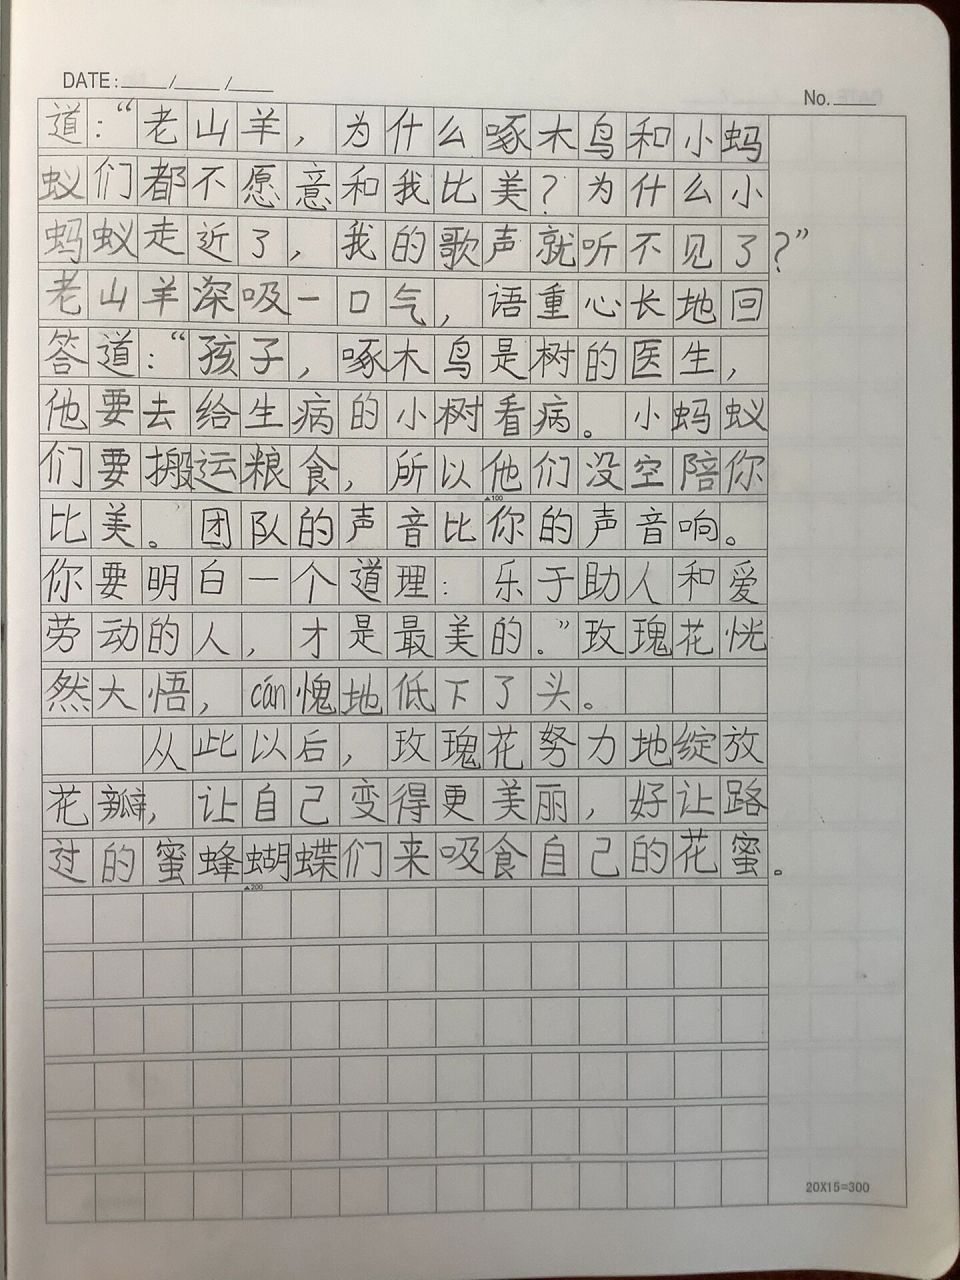 DATE:____/____/____
No.____
道：“老山羊，为什么啄木鸟和小蚂
蚁们都不愿意和我比美？为什么小
蚂蚁走近了，我的歌声就听不见了？”
老山羊深吸一口气，语重心长地回
答道：“孩子，啄木鸟是树的医生，
他要去给生病的小树看病。小蚂蚁
们要搬运粮食，所以他们没空陪你
▲100
比美。团队的声音比你的声音响。
你要明白一个道理：乐于助人和爱
劳动的人，才是最美的。”玫瑰花恍
然大悟，cán愧地低下了头。
从此以后，玫瑰花努力地绽放
花瓣，让自己变得更美丽，好让路
过的蜜蜂蝴蝶们来吸食自己的花蜜。
▲200
20X15=300